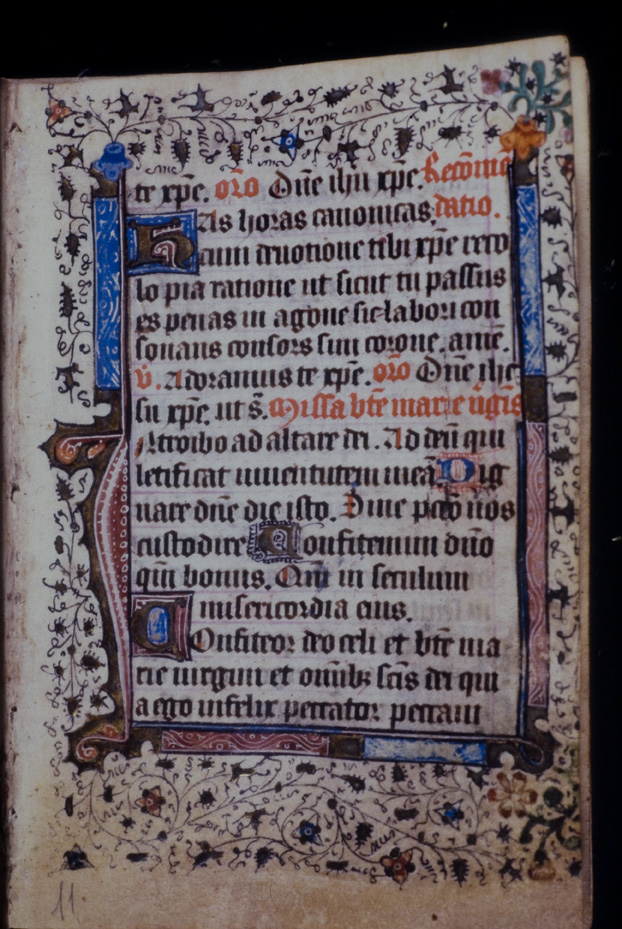 te xp̄e. or̄o Dn̄e ihū xp̄e. Recom̄e
As horas canonicas. datio.
cum deuotione tibi xp̄e reco
lo pia ratione ut sicut tu passus
es penas in agone sic labori con
sonans consors sim corone. amē.
v. Adoramus te xp̄e. or̄o Dn̄e ihe
su xp̄e. ut s̄. Missa bt̄e marie ūgīs
Introibo ad altare dei. Ad deū qui
letificat iuuentutem meā Dig
nare dn̄e die isto. Sine pctō nos
custodire Confitemini dn̄o
qm̄ bonus. Qm̄ in seculum
misericordia eius.
Confiteor deo celi et bt̄e ma
rie uirgini et omībꝫ scīs dei qui
a ego infelix peccator peccaui
11.